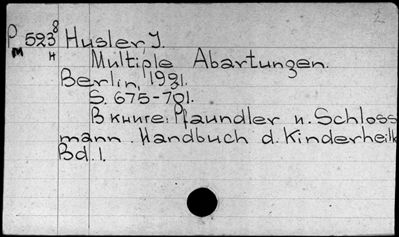 2
P 523⁸ Husler, J.
м н Multiple Abartungen.
Berlin, 1931.
S. 675-701.
В книге: Pfaundler u. Schloss
mann. Handbuch d. Kinderheilk
Bd. 1.